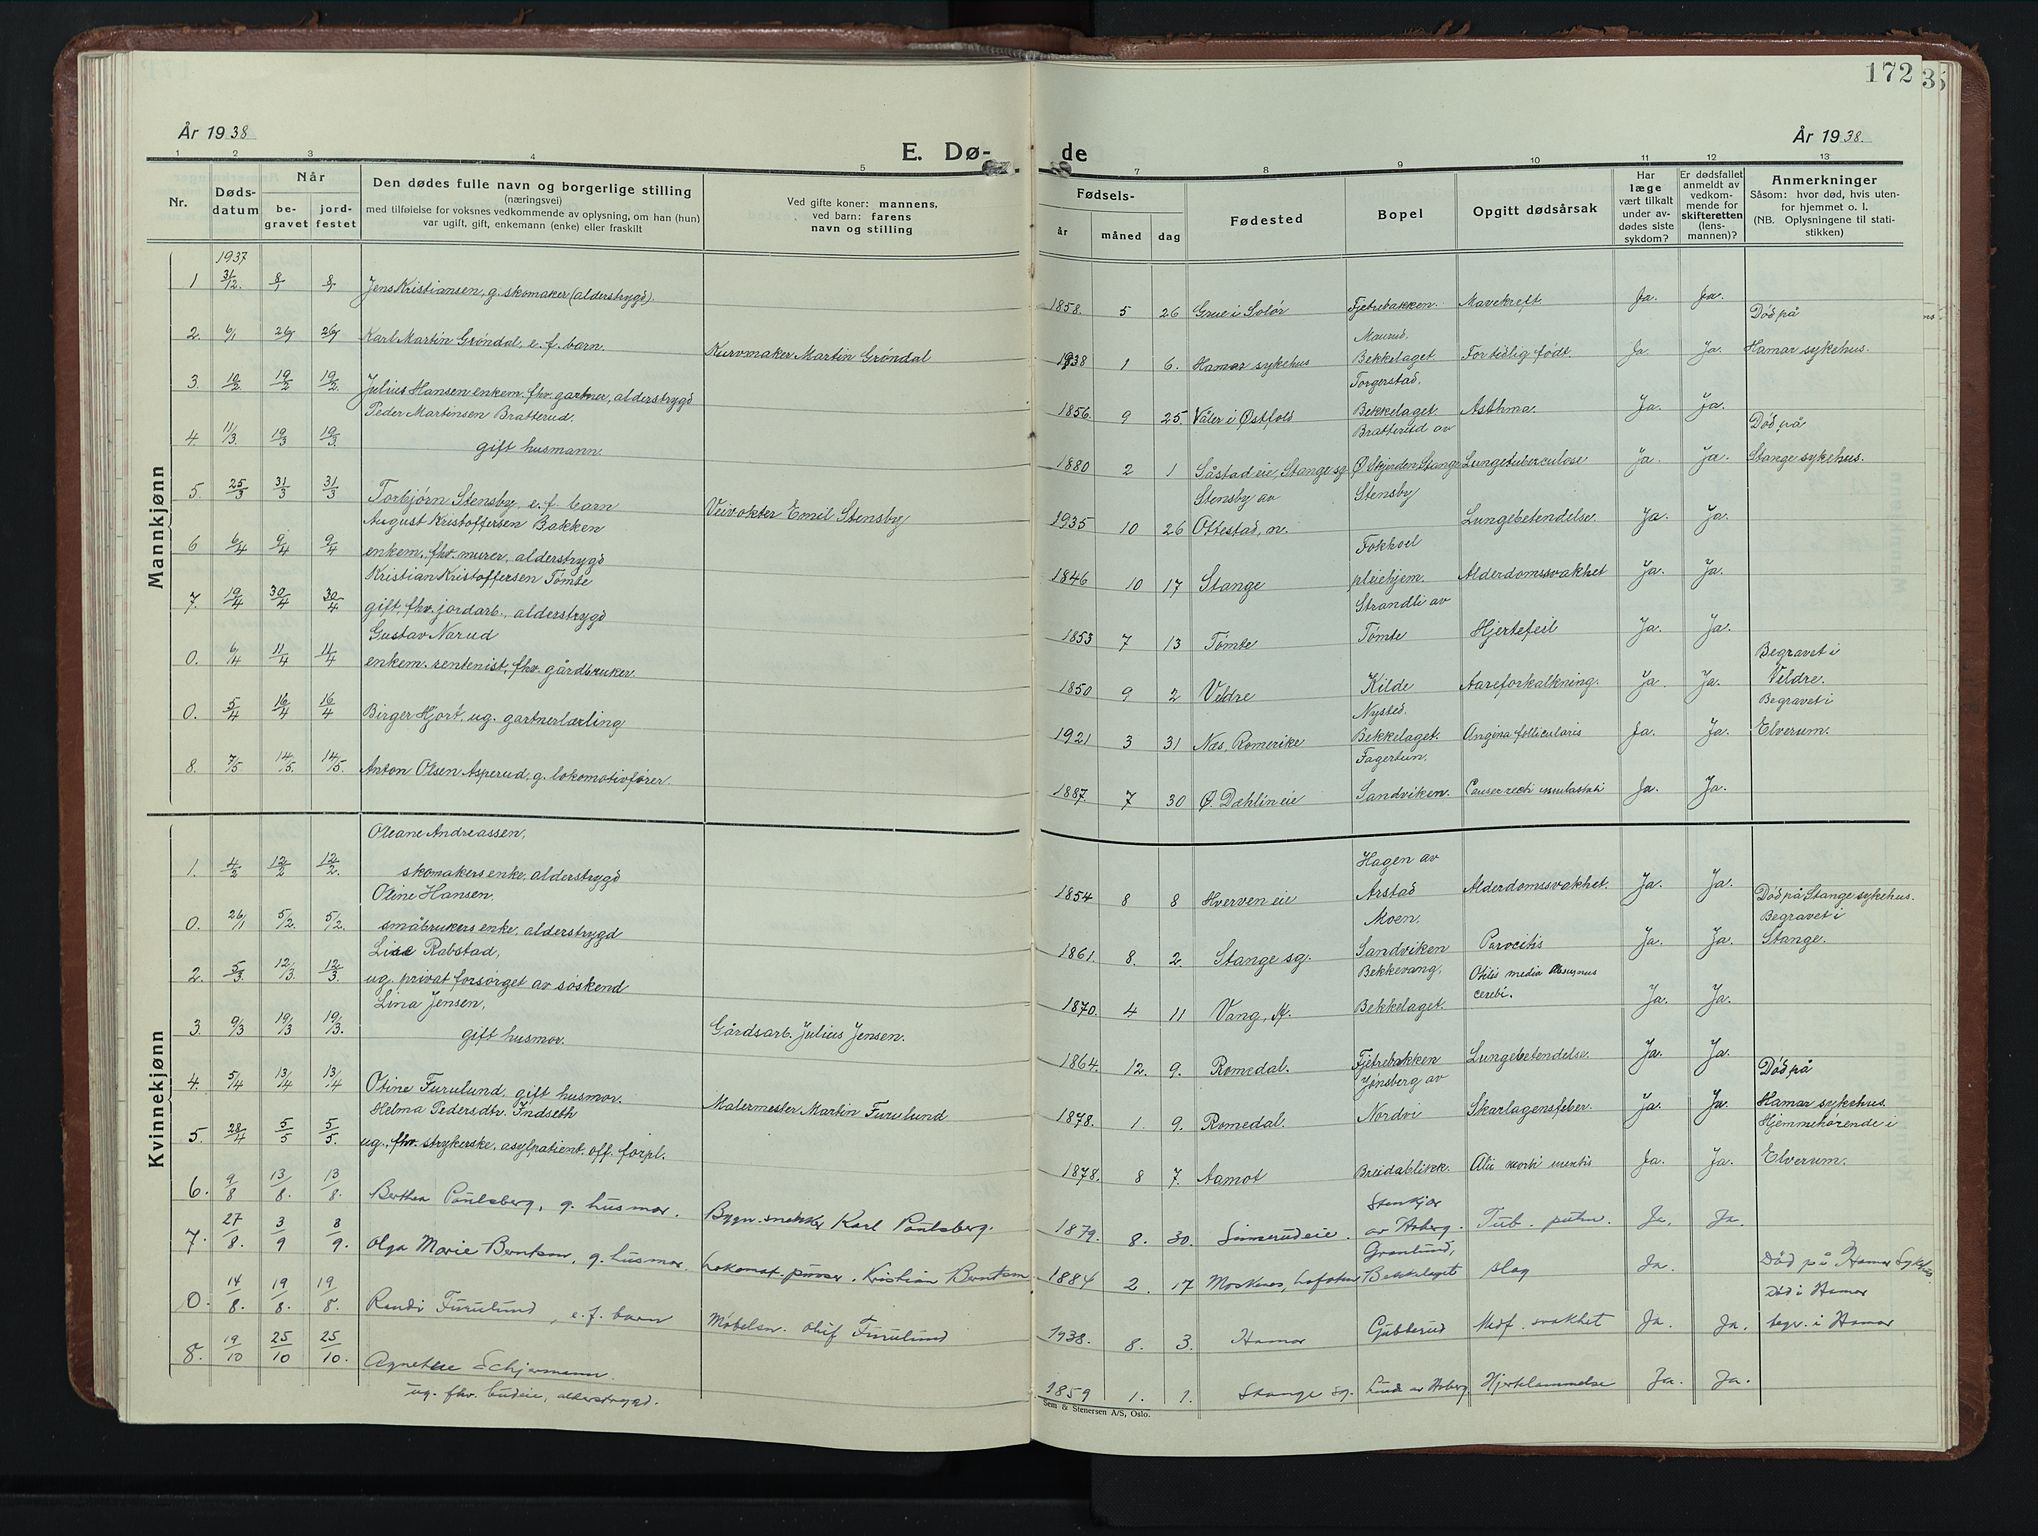 172
År 1938
År 1938.
E. Dø-
de
1 2 3 4 5 7 8 9 10 11 12 13
Nr.
Døds-
datum
Når
be-
gravet
jord-
festet
Den dødes fulle navn og borgerlige stilling
(næringsvei)
med tilføielse for voksnes vedkommende av oplysning, om han (hun)
var ugift, gift, enkemann (enke) eller fraskilt
Ved gifte koner: mannens,
ved barn: farens
navn og stilling
Fødsels-
år måned dag
Fødested
Bopel
Opgitt dødsårsak
Har
læge
vært tilkalt
under av-
dødes siste
sykdom?
Er dødsfallet
anmeldt av
vedkom-
mende for
skifteretten
(lens-
mannen)?
Anmerkninger
Såsom: hvor død, hvis uten-
for hjemmet o. l.
(NB. Oplysningene til stati-
stikken)
Mannkjønn
1937
1 31/12 8/1 8/1 Jens Kristiansen, g. skomaker (alderstrygd). 1858. 5 26 Grue i Solør Fjetrebakken. Mavekreft. Ja. Ja.
2. 6/1 26/1 26/1 Karl Martin Grøndal, e. f. barn. Kurvmaker Martin Grøndal 1938 1 6. Hamar sykehus Maurud. Bekkelaget For tidlig født. Ja. Ja. Død på Hamar sykehus.
3. 10/2. 19/2 19/2. Julius Hansen enkem. fhv. gartner, alderstrygd 1856. 9 25. Våler i Østfold Torgerstad. Bekkelaget. Asthma. Ja. Ja.
4. 11/3. 19/3 19/3. Peder Martinsen Bratterud. gift husmann. 1880 2 1 Såstad eie, Stange sg. Bratterud av Ø Skjerden Stange Lungetuberculose Ja. Ja. Død på Stange sykehus.
5. 25/3 31/3 31/3 Torbjørn Stensby, e. f. barn Veivokter Emil Stensby 1935 10 26 Stensby av Ottestad, n. Stensby Lungebetendelse. Ja. Ja.
6 6/4 9/4 9/4 August Kristoffersen Bakken enkem., fhv. murer, alderstrygd 1846 10 17 Stange Fokhoel pleiehjem. Alderdomssvakhet Ja. Ja.
7. 19/4 30/4 30/4 Kristian Kristoffersen Tømte gift, fhv. jordarb., alderstrygd 1853 7 13 Tømte Strandli av Tømte Hjertefeil Ja. Ja.
0. 6/4 11/4 11/4 Gustav Narud enkem. rentenist, fhv. gårdbruker 1850 9 2 Veldre Kilde Aareforkalkning. Ja. Ja. Begravet i Veldre.
0. 5/4 16/4 16/4 Birger Hjort, ug. gartnerlærling 1921 3 31 Næs, Romerike Nysted. Bekkelaget. Angina follicularis Ja. Ja. Begravet i Elverum.
8. 7/5. 14/5. 14/5. Anton Olsen Asperud, g. lokomotivfører. 1887. 7 30 Ø. Dæhlin eie Fagertun, Sandviken. Ja. Ja.
Kvinnekjønn
1. 4/2 12/2 12/2. Oleane Andreassen, skomakers enke, alderstrygd 1854 8 8 Hverven eie Hagen av Arstad Alderdomssvakhet. Ja. Ja.
0. 26/1 5/2. 5/2. Oline Hansen, småbrukers enke, alderstrygd 1861. 8. 2. Stange sg. Moen. Sandviken Ja. Ja. Død på Stange sykehus. Begravet i Stange.
2. 5/3. 12/3. 12/3. Lise Rabstad, ug. privat forsørget av søskend 1870. 4 11 Vang, H. Bekkevang, Bekkelaget. Otitis media cerebi. Ja. Ja.
3. 9/3 19/3 19/3. Lina Jensen, gift husmor. Gårdsarb. Julius Jensen. 1864. 12. 9. Romedal. Fjetrebakken Lungebetendelse. Ja. Ja.
4. 5/4 13/4 13/4 Otine Furulund, gift husmor. Malermester Martin Furulund 1878. 1. 9. Romedal. Jønsberg av Nordvi Skarlagensfeber. Ja. Ja. Død på Hamar sykehus.
5. 28/4 5/5 5/5. Helma Pedersdtr. Indseth ug., fhv. strykerske, asylpatient, off. forpl. 1878. 8 7. Aamot Breidablikk. Ja. Ja. Hjemmehørende i Elverum.
6. 9/8 13/8. 13/8. Berthea Poulsberg, g. husmor. Bygn. snekker Karl Poulsberg. 1879. 8. 30. Stenkjær av Arberg. Tub. pulm. Ja. Ja.
7. 27/8. 3/9 8/9. Olga Marie Berntsen, g. husmor. Lokomot. pusser. Kristian Berntsen 1884 2. 17. Moskenes, Lofoten Granlund, Bekkelaget slag Ja. Død på Hamar Sykehus
0. 14/8. 19/8. 19/8. Randi Furulund, e. f. barn Møbelsn. Olif Furulund 1938. 8. 3. Hamar Gubberud Medf. svakhet Ja. Ja. Død i Hamar begr. i Hamar
8. 19/10 25/10 25/10. Agnethe Schjermann. ug. fhv. budeie, alderstrygd. 1859 1. 1. Stange sg. Lund av Arberg Hjertelammelse Ja. Ja.
Sem & Stenersen A/S, Oslo.